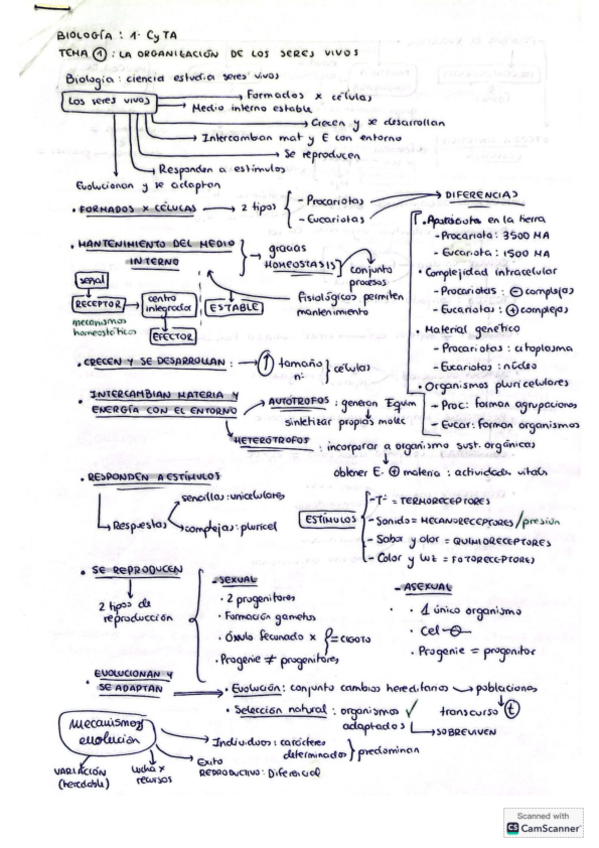 BIOLOGÍA : 1º CyTA
TEMA 1 : LA ORGANIZACIÓN DE LOS SERES VIVOS
Biología : ciencia estudia seres vivos
Los seres vivos
Formados x células
Medio interno estable
Crecen y se desarrollan
Intercambian mat y E con entorno
Se reproducen
Responden a estímulos
Evolucionan y se adaptan
• FORMADOS X CÉLULAS → 2 tipos
- Procariotas
- Eucariotas
DIFERENCIAS
• en la tierra
- Procariota : 3500 MA
- Eucariota : 1500 MA
• Complejidad intracelular
- Procariotas : ⊖ complejas
- Eucariotas : ⊕ complejas
• Material genético
- Procariotas : citoplasma
- Eucariotas : núcleo
• Organismos pluricelulares
- Proc : forman agrupaciones
- Eucar : forman organismos
• MANTENIMIENTO DEL MEDIO
INTERNO
→ gracias
HOMEOSTASIS
conjunto
procesos
fisiológicos permiten
mantenimiento
señal
RECEPTOR
centro
integrador
EFECTOR
ESTABLE
mecanismos
homeostáticos
• CRECEN Y SE DESARROLLAN : → ↑ tamaño
nº
células
• INTERCAMBIAN MATERIA Y
ENERGÍA CON EL ENTORNO
AUTÓTROFOS : generan Equim
sintetizar propias molec
HETERÓTROFOS : incorporar a organismo sust. orgánicas
obtener E. ⊕ materia : actividades vitales
• RESPONDEN A ESTÍMULOS
Respuestas
sencillas : unicelulares
complejas : pluricel
ESTÍMULOS
- Tª = TERMORECEPTORES
- Sonido = MECANORECEPTORES / presión
- Sabor y olor = QUIMIORECEPTORES
- Color y luz = FOTORECEPTORES
• SE REPRODUCEN
2 tipos de
reproducción
- SEXUAL
• 2 progenitores
• Formación gametos
• Óvulo fecunado x = CIGOTO
• Progenie ≠ progenitores
- ASEXUAL
• 1 único organismo
• Cel
• Progenie = progenitor
• EVOLUCIONAN Y
SE ADAPTAN
• Evolución : conjunto cambios hereditarios → poblaciones
• Selección natural : organismos ✓
adaptados
SOBREVIVEN
transcurso t
Mecanismos
evolución
VARIACIÓN
(heredable)
Lucha x
recursos
Exito
REPRODUCTIVO : Diferencial
Individuos : carácteres
determinados
predominan
Scanned with
CS CamScanner